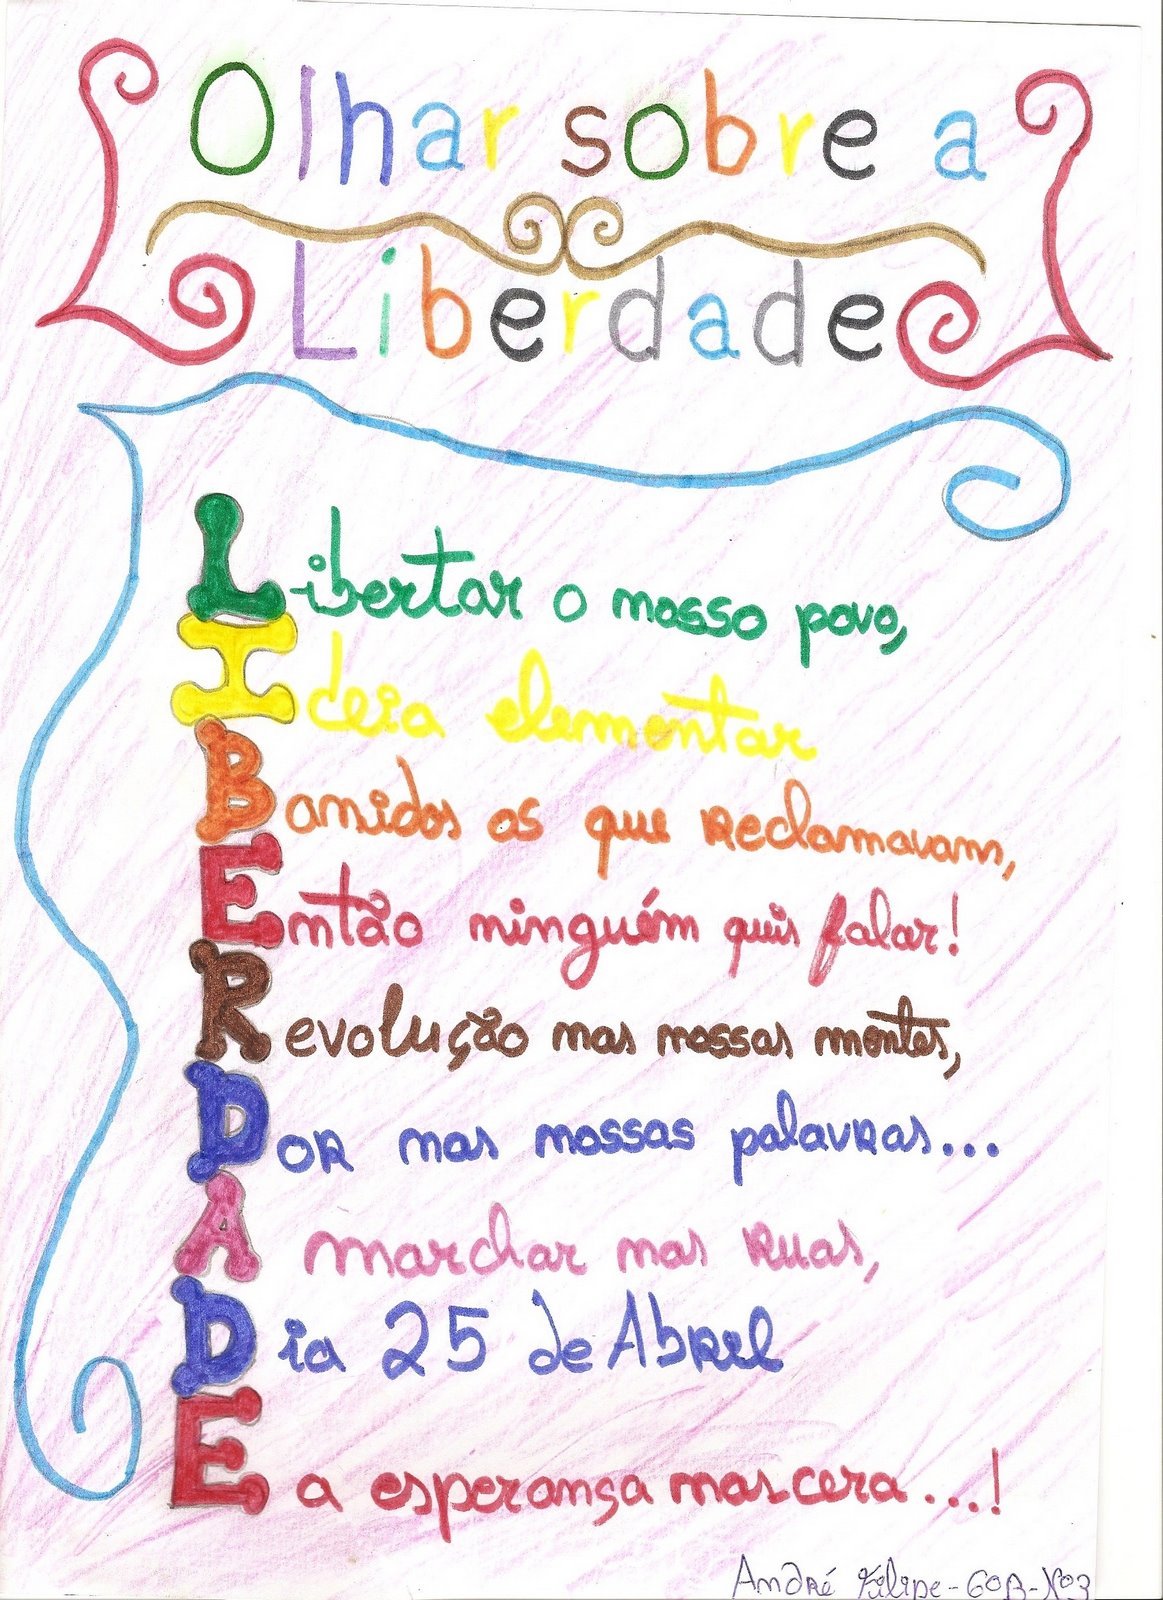 Olhar sobre a
Liberdade
Libertar o nosso povo,
Ideia elementar
Banidos os que reclamavam,
Então ninguém quis falar!
Revolução nas nossas mentes,
Dor nas nossas palavras...
A marchar nas ruas,
Dia 25 de Abril
E a esperança nascera...!
André Filipe-6ºB-Nº3